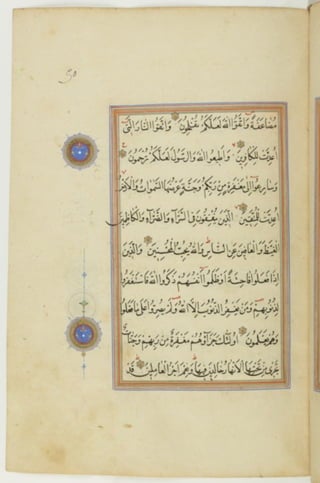 50
مضاعفة واتقوا الله لعلكم تفلحون واتقوا النار التي
اعدت للكافرين واطيعوا الله والرسول لعلكم ترحمون
وسارعوا الى مغفرة من ربكم وجنة عرضها السموات والارض
اعدت للمتقين الذين ينفقون في السراء والضراء والكاظمين
الغيظ والعافين عن الناس والله يحب المحسنين والذين
اذا فعلوا فاحشة او ظلموا انفسهم ذكروا الله فاستغفروا
لذنوبهم ومن يغفر الذنوب الا الله ولم يصروا على ما فعلوا
وهم يعلمون اولئك جزاؤهم مغفرة من ربهم وجنات
تجري من تحتها الانهار خالدين فيها ونعم اجر العاملين قد